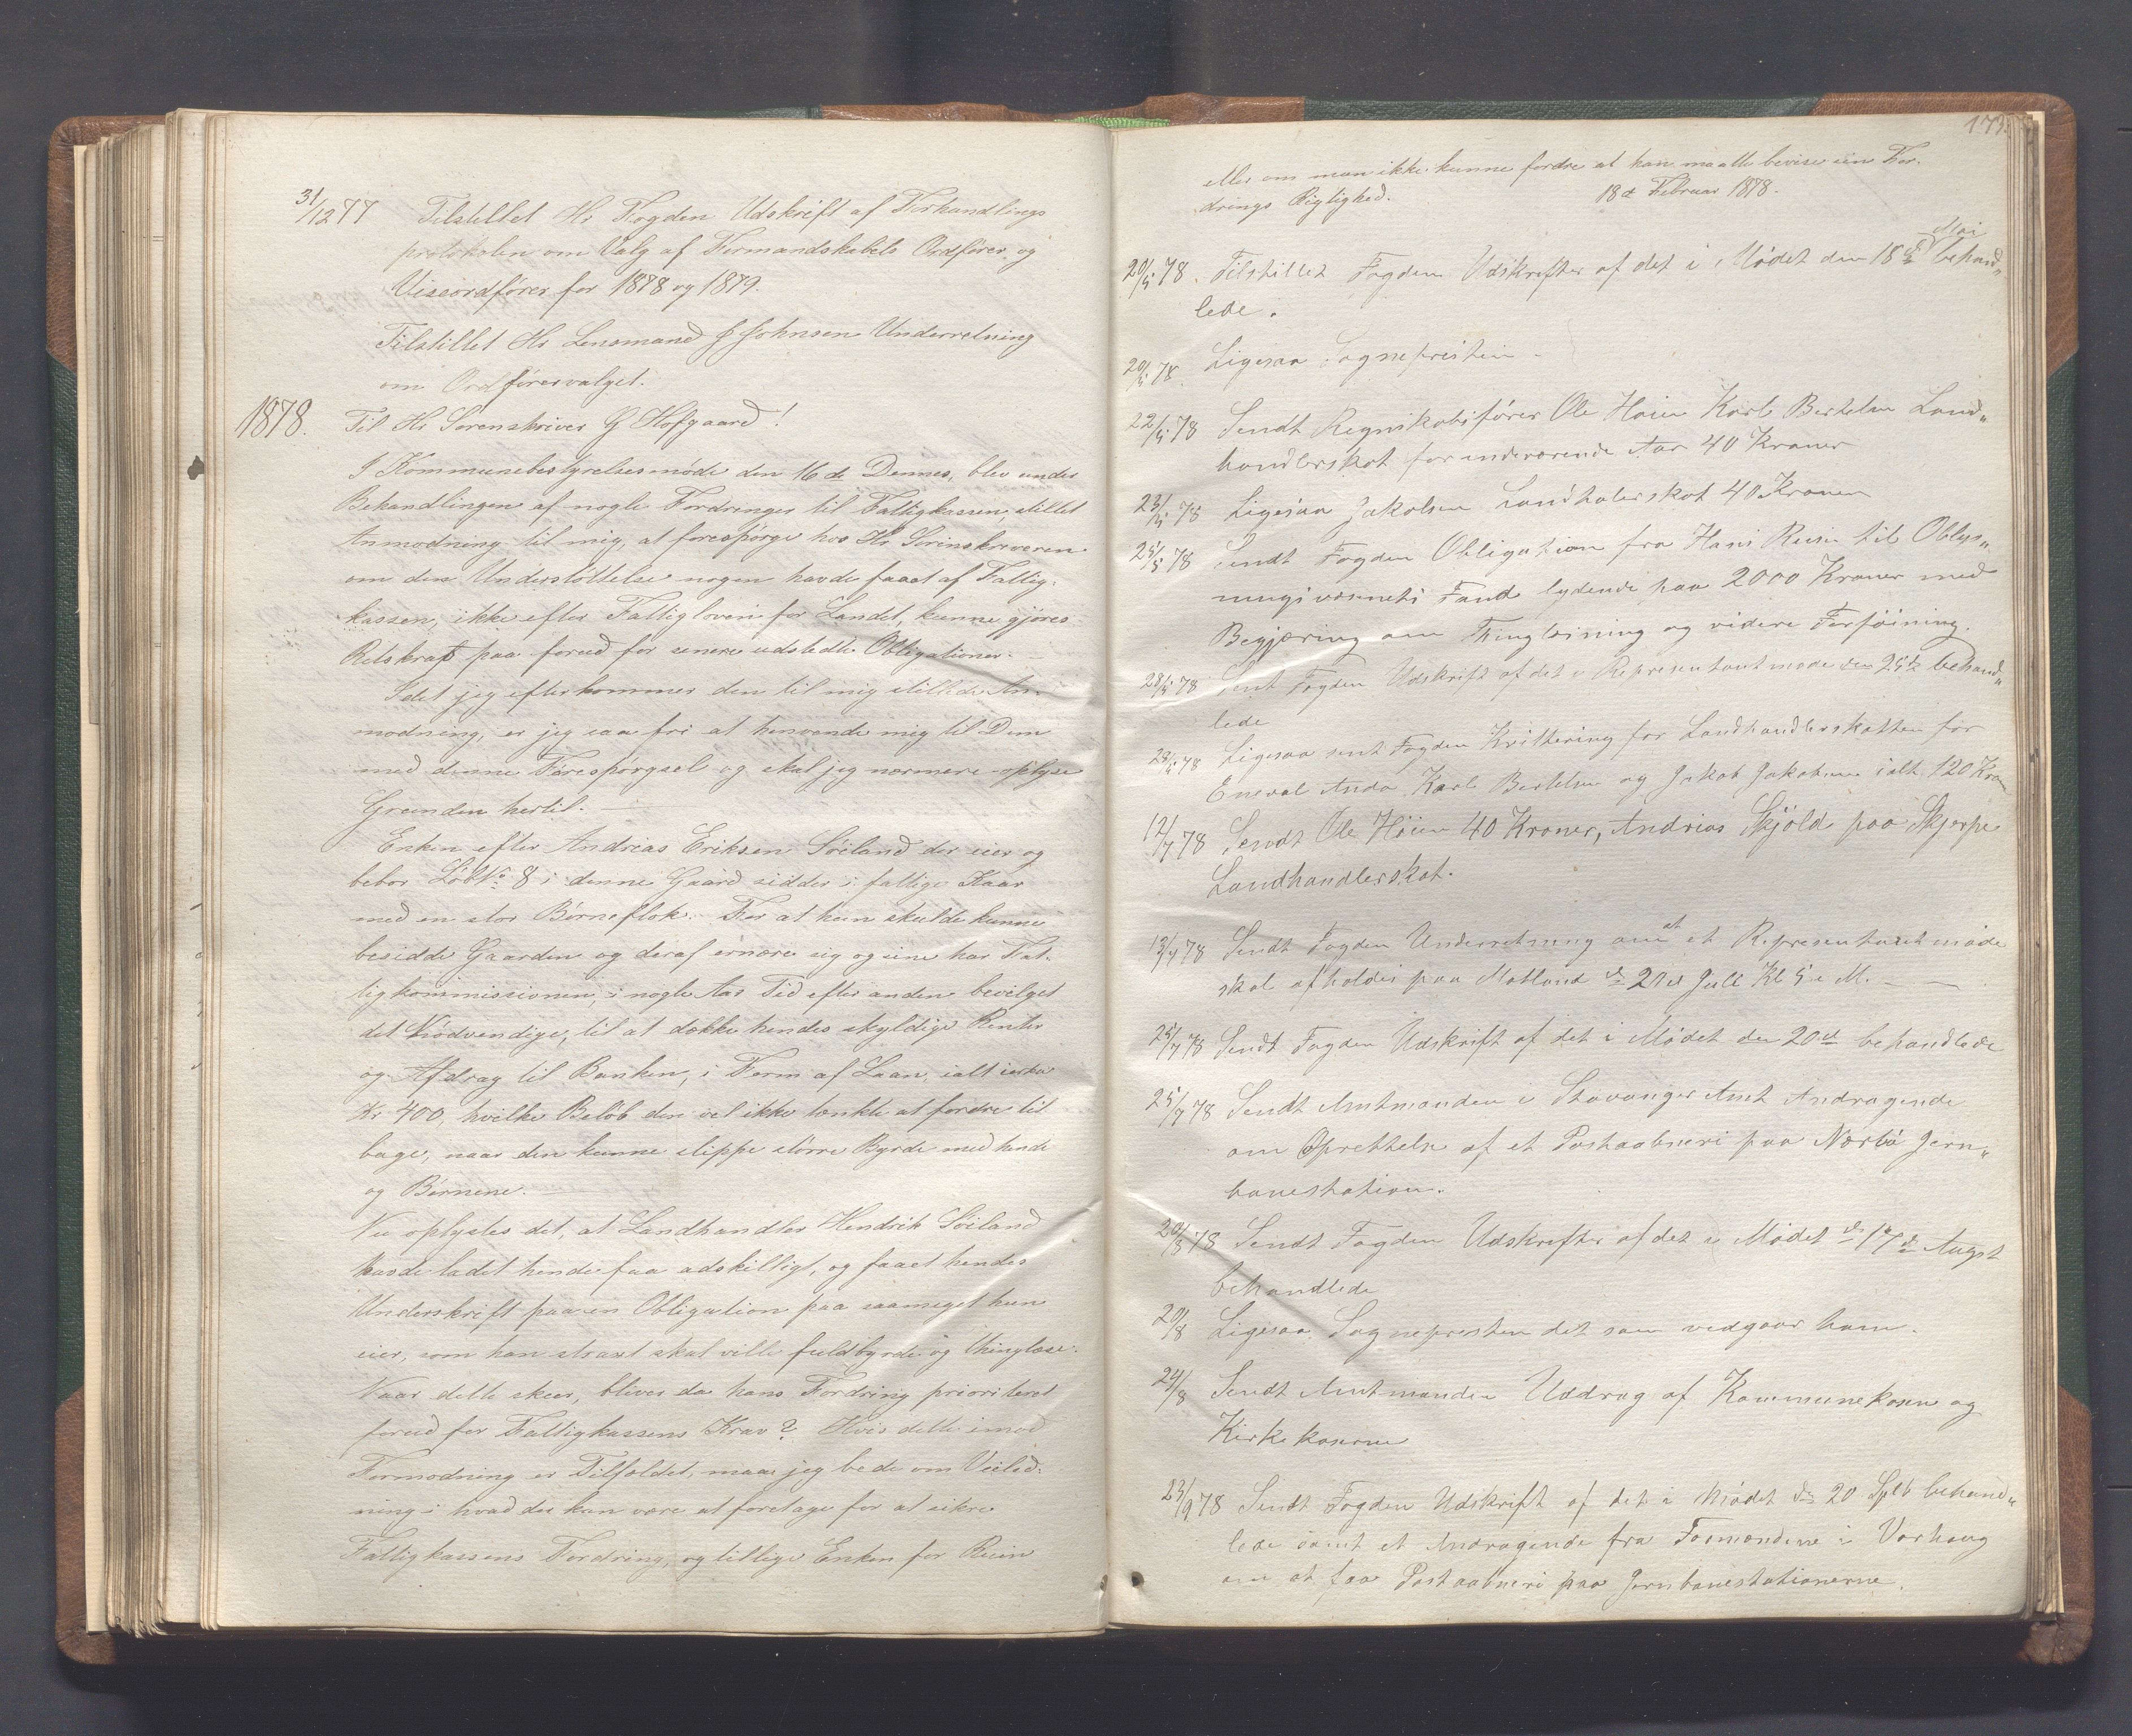 31/12 77 Tilstillet Hr Fogden Udskrift af Forhandlings
protokolen om Valg af Formandskabets Ordfører og
Viseordfører for 1878 og 1879.
Tilstillet Hr Lensmand J Johnsen Underretning
om Ordførervalget.
1878. Til Hr Sorenskriver G Hofgaard!
I Kommunebestyrelsesmøde den 16de Dennes, blev under
Behandlingen af nogle Fordringer til Fattigkassen, stillet
Anmodning til mig, at forespørge hos Hr Sorinskriveren
om den Understøttelse nogen havde faaet af Fattig-
kassen, ikke efter Fattigloven for Landet, kunne gjøres
Retskraft paa forud for senere udstedte Obligationer. —
Idet jeg efterkommer den til mig stillede An-
modning, er jeg saa fri at henvende mig til Dem
med denne Forespørgsel og skal jeg nærmere oplyse
Grunden hertil. —
Enken efter Andreas Eriksen Søiland der eier og
bebor LøbNo 8 i denne Gaard sidder i fattige Kaar
med en stor Børneflok. For at hun skulde kunne
besidde Gaarden og deraf ernære sig og sine har Fat-
tigkommissionen, i nogle Aar Tid efter anden bevilget
det Nødvendige, til at dække hendes skyldige Renter
og Afdrag til Banken, i Form af Laan, ialt cirka
Kr 400, hvilke Beløb den vel ikke tænkte at fordre til
bage, naar den kunne slippe større Byrde med hende
og Børnene. —
Nu oplystes det, at Landhandler Hendrik Søiland
havde ladet hende faa adskilligt, og faaet hendes
Underskrift paa en Obligation paa saameget hun
eier, som han straxt skal ville fuldbyrde og thinglæse.
Naar dette skeer, bliver da hans Fordring prioriteret
forud for Fattigkassens Krav? Hvis dette imod
Formodning er Tilfældet, maa jeg bede om Veiled-
ning i hvad der kan være at foretage for at sikre
Fattigkassens Fordring, og tillige Enken for Ruin
173.
eller om man ikke kunne fordre at han maatte bevise sin For-
drings Rigtighed. 18de Februar 1878.
20/5 78. Tilstillet Fogden Udskrifter af det i Mødet den 18de Mai behand„
lede.
20/5 78. Ligesaa Sognepresten —
22/5 78 Sendt Regnskabsfører Ole Høien Karl Bertelsen Land„
handlerskat for indeværende Aar 40 Kroner
23/5 78 Ligesaa Jakobsen Landhalerskat 40 Kroner
25/5 78 Sendt Fogden Obligation fra Hans Reisn til Oblys„
ningsvæsnets Fond lydende paa 2000 Kroner med
Begjæring om Thinglæsning og videre Forføining.
28/5 78 Sent Fogden Udskrift af det i Representantmøde den 25de behand„
lede
28/5 78 Ligesaa sent Fogden Kvittering for Landhandlerskatten for
Enevald Anda Karl Bertelsen og Jakob Jakobsen ialt 120 Kron
12/7 78 Sendt Ole Høien 40 Kroner, Andrias Skjöld paa Skjerpe
Landhandlerskat.
13/7 78 Sendt Fogden Underretning om at et Representantmøde
skal afholdes paa Motland d. 20de Juli Kl 5 e M. — —
25/7 78 Sendt Fogden Udskrift af det i Mødet den 20de behandlede
25/7 78 Sendt Amtmanden i Stavanger Amt Andragende
om Oprettelse af et Postaabneri paa Nærbø Jern„
banestation.
20/8 78 Sendt Fogden Udskrifter af det i Mødet d. 17de Augst
behandlede
20/8 Ligesaa Sognepresten det som vedgaar ham.
24/8 Sendt Amtmanden Uddrag af Kommunekasen og
Kirkekaserne
23/9 78 Sendt Fogden Udskrift af det i Mødet den 20 Sptb behand„
lede samt et Andragende fra Formændene i Varhaug
om at faa Postaabneri paa Jernbanestationerne.